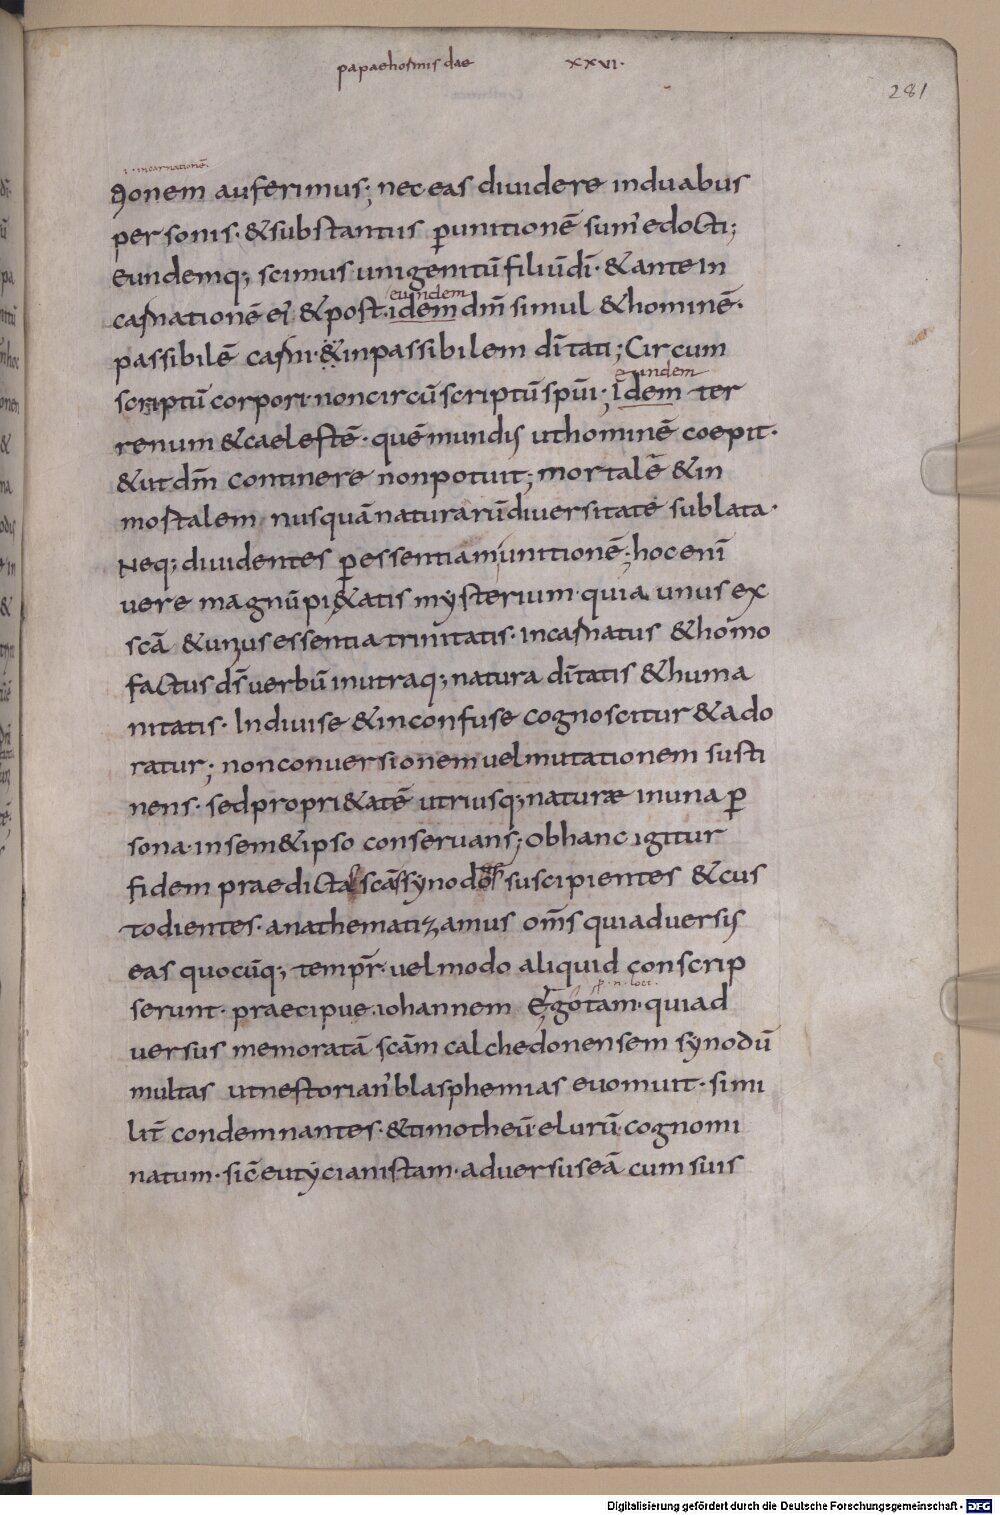 papae hormisdae XXVI.
281
i. incarnationē.
onem auferimus; nec eas diuidere in duabus
personis. & substantiis p̱ unitionē sum' edocti;
Eundemq; scimus unigenitū filiū dī. & ante in
eundem
carnationē ei' & post. idem dm̄ simul & hominē.
passibilē carni. & inpassibilem dīitati; Circum
eundem
scriptū corpori. non circūscriptū spūi. Idem ter
renum & caelestē. quē mundis ut hominē coepit.
& ut dm̄ continere non potuit; mortalē & in
mortalem nusquā naturarū diuersitate sublata.
Neq; diuidentes p̱ essentiam unitionē; hoc enī
uere magnū pi&atis mysterium. quia unus ex
scā & unus essentia trinitatis. incarnatus & homo
factus dš uerbū in utraq; natura dīitatis & huma
nitatis. Indiuise & inconfuse cognoscitur & ado
ratur; non conuersionem uel mutationem susti
nens. sed propri&atē utriusq; naturae in una p̱
sona. in sem&ipso conseruans; Ob hanc igitur
fidem praedictas scās synodos suscipientes & cus
todientes. anathematizamus oms̄ qui aduersis
eas quocūq; tempr̄. uel modo aliquid conscrip
p. n. loci.
serunt. praecipue. iohannem Egotam. qui ad
uersus memoratā scām calchedonensem synodū
multas ut nestorian' blasphemias euomuit. simi
lit̄ condemnantes. & timotheū. elurū. cognomi
natum. sic̄ eutycianistam. aduersus eā cum suis
Digitalisierung gefördert durch die Deutsche Forschungsgemeinschaft - DFG